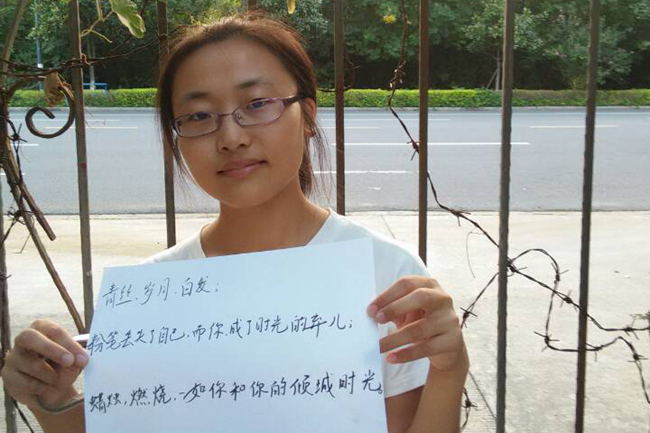 青丝、岁月、白发；
粉笔丢失了自己，而你，成了时光的弃儿；
蜡烛，燃烧，一如你和你的倾城时光。